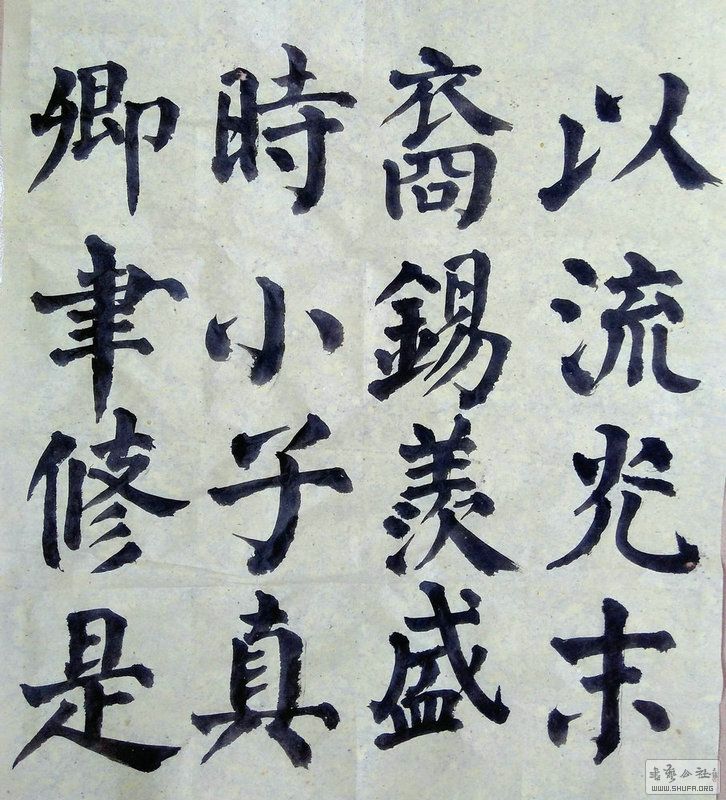 以流光末
裔錫羨盛
時小子真
卿聿修是
書藝公社
WWW.SHUFA.ORG